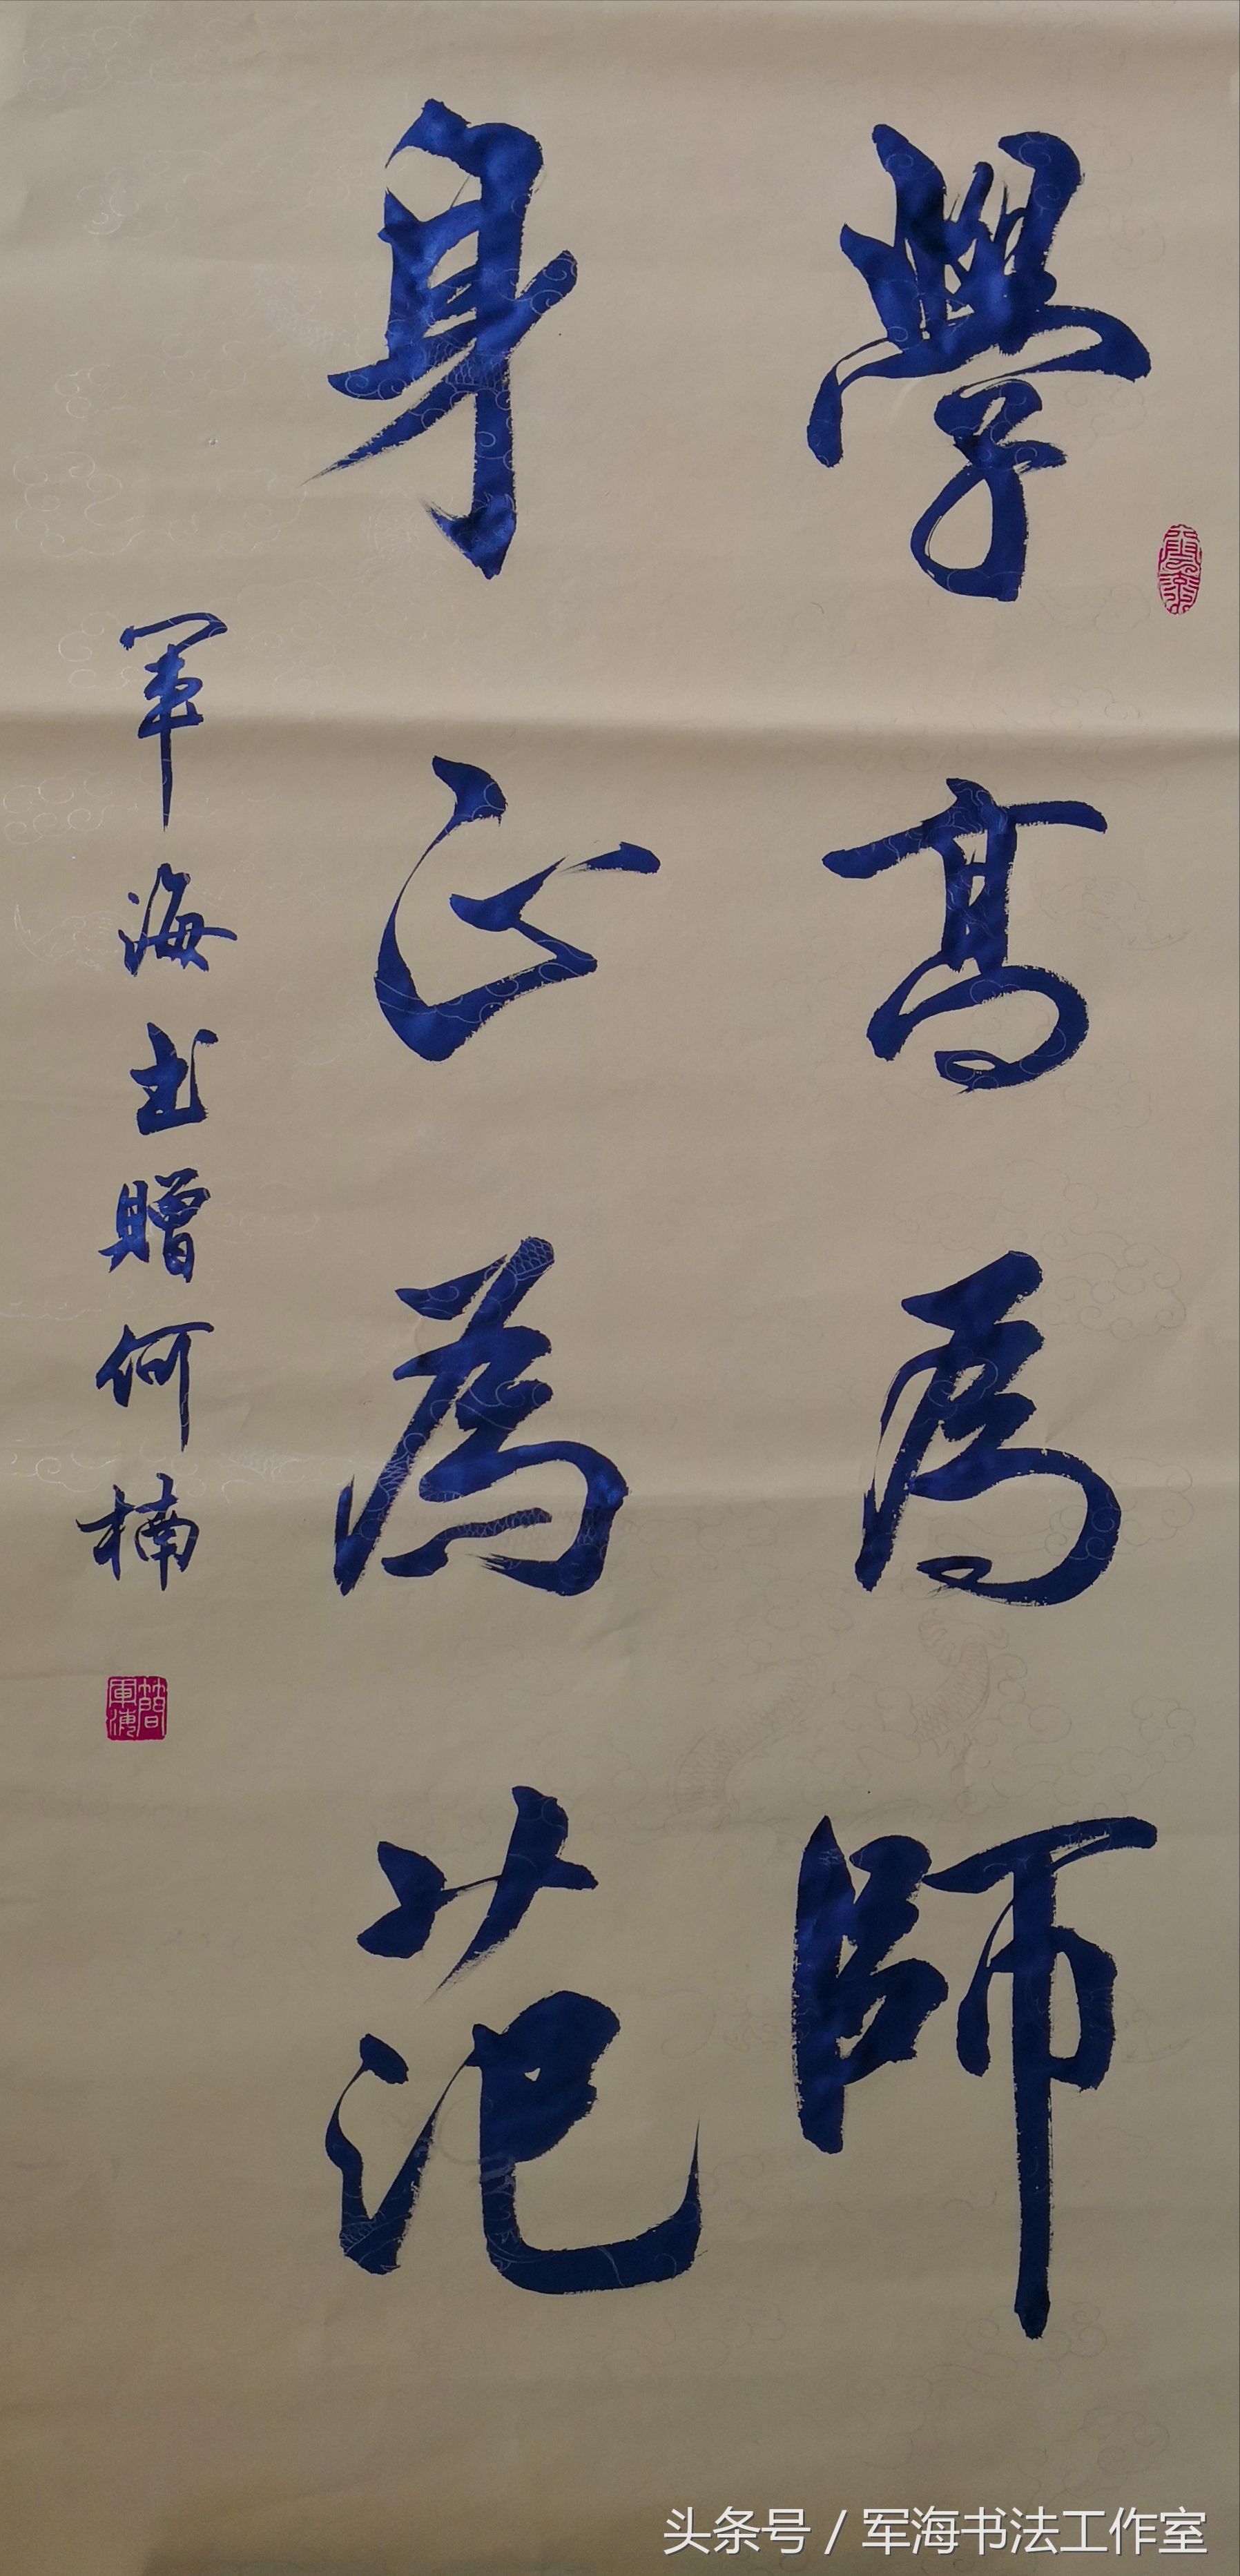 學高為師
身正為范
軍海书贈何楠
簡軍海
头条号 / 军海书法工作室